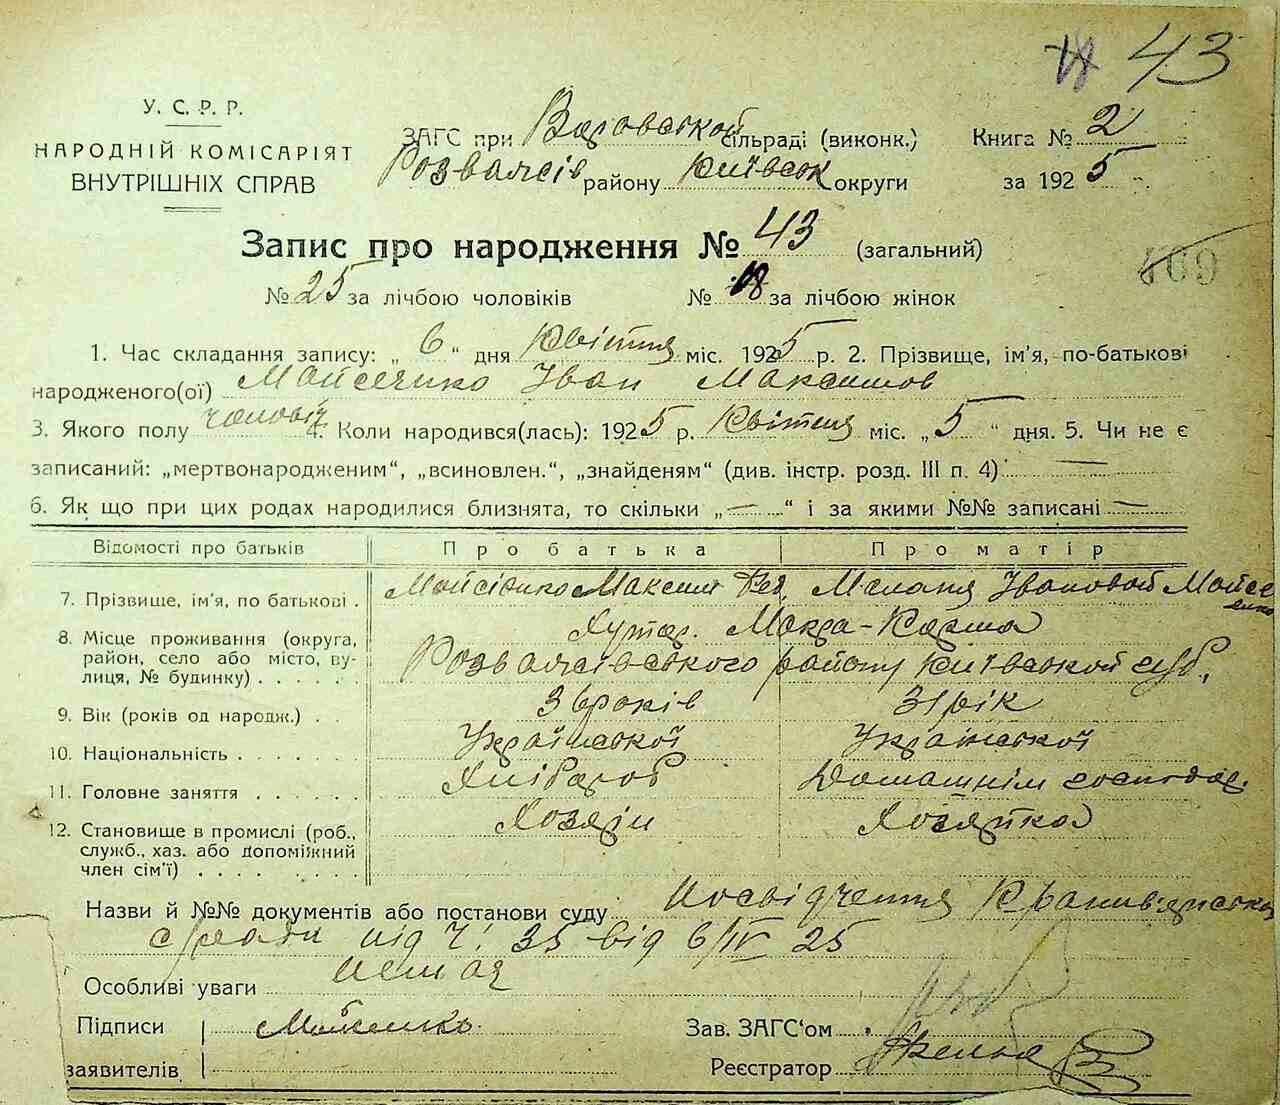 43
У. С. Р. Р.
НАРОДНІЙ КОМІСАРІЯТ
ВНУТРІШНІХ СПРАВ
ЗАГС при сільраді (виконк.)
Розважів району Київськ округи
Книга № 2
за 1925
Запис про народження № 43 (загальний)
№ 25 за лічбою чоловіків № за лічбою жінок
1. Час складання запису: „ 6 “ дня Квітня міс. 1925 р. 2. Прізвище, ім’я, по-батькові
народженого(ої) Мойсеєнко Іван Максимов
3. Якого полу чоловіч 4. Коли народився(лась): 1925 р. Квітня міс. „ 5 “ дня. 5. Чи не є
записаний: „мертвонародженим“, „всиновлен.“, „знайденям“ (див. інстр. розд. III п. 4) —
6. Як що при цих родах народилися близнята, то скільки „ — “ і за якими №№ записані —
Відомості про батьків Про батька Про матір
7. Прізвище, ім’я, по батькові . Мойсієнко Максим Меланя Івановой
8. Місце проживання (округа, район, село або місто, вулиця, № будинку) . . . . . . Хутор. Мокра-Корма
Розважівського району Київської
9. Вік (років од народж.) . . 36 років 31 рік
10. Національність . . . . . . . Української Української
11. Головне заняття . . . . . . Хлібороб Домашнім господар.
12. Становище в промислі (роб., служб., хаз. або допоміжний член сім’ї) . . . . . . . . . Хозяїн Хозяйка
Назви й №№ документів або постанови суду Посвідчення
с/ради під ч. 35 від 6/IV 25
Особливі уваги немає
Підписи
заявителів
Зав. ЗАГС‘ом
Реєстратор